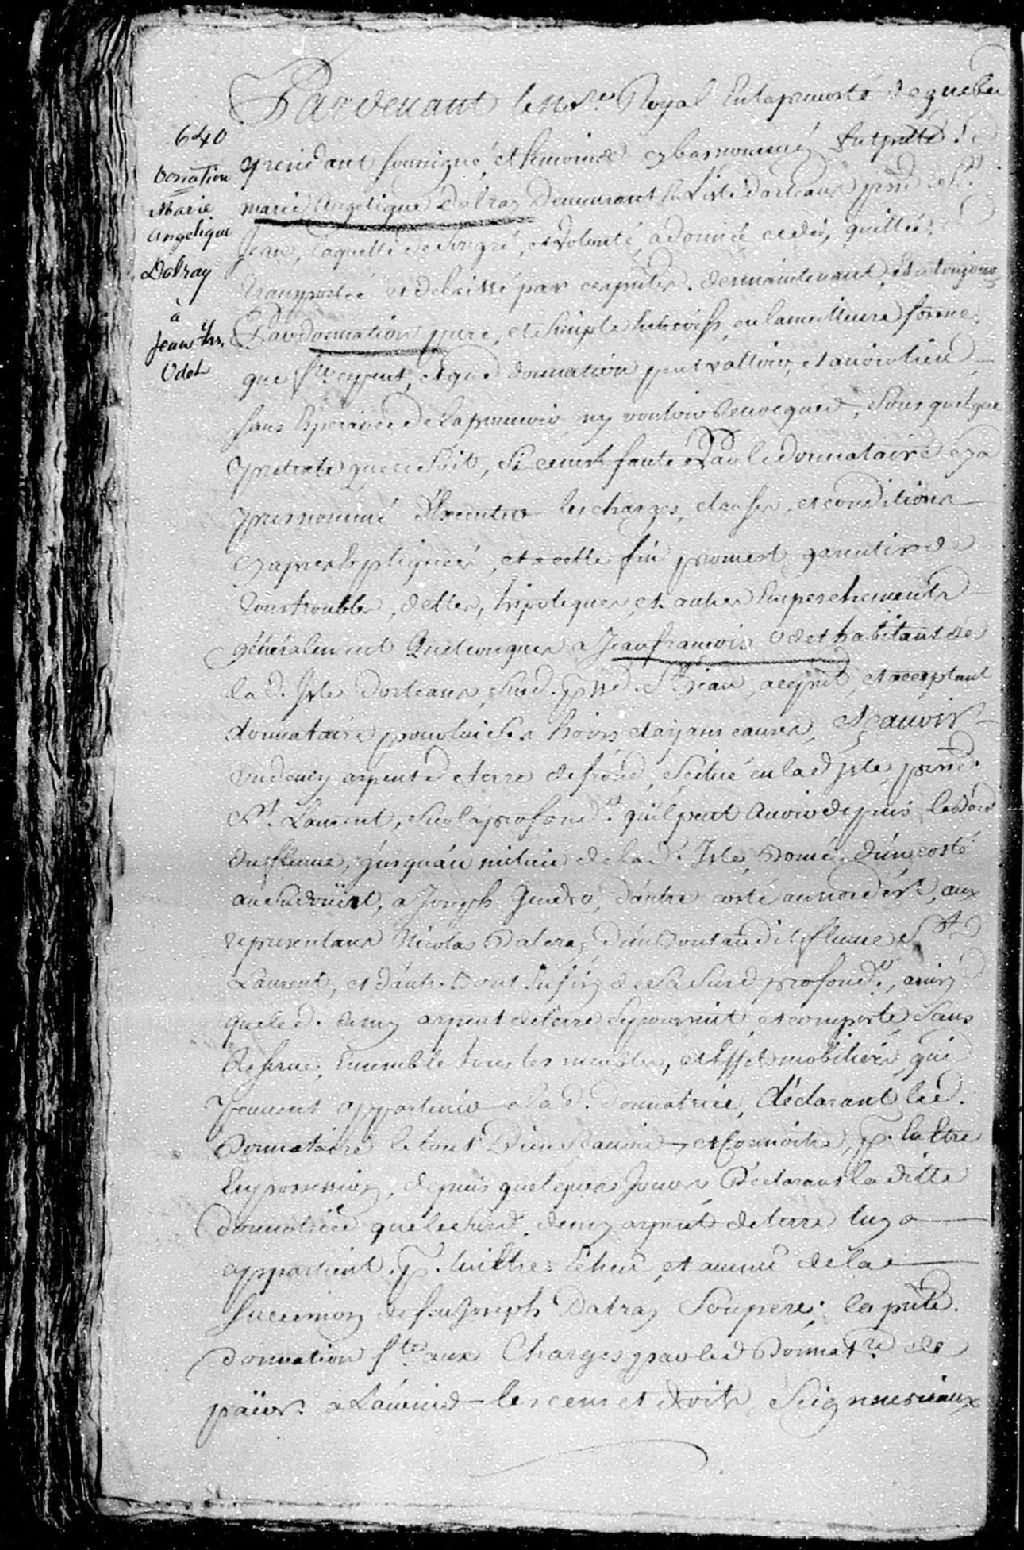 640
Donation
Marie
Angelique
Dalray
à
Jean frs
Odet
Pardevant le Nore Royal En la prevosté de quebec
residant soussigné, et temoins cy bas nommé fut prte
marie Angelique Dalray Demeurant En L'isle d'orleans prsse St
Jean, laquelle de son gré, et volonté, a donné cedé, quitté,
transporté et delaissé par ces prtes. des maintenant, et a toujours
Par donnation pure, et simple Entrevifs, en la meilleure forme,
que fre ce peut, et que donnation peut valloir, et avoir lieu
sans Esperance de la pouvoir ny vouloir Revocquer, sous quelque
pretexte que ce soit, si ce n'est faute Par le donnataire cya
pres nommé d'Executer les charges, clauses, et conditions
cy apres Expliquées, et a cette fin promest garantir de
tous troubles, dettes, hipoteques, et autres Empeschements
généralement Quelconques a Jean francois Odet habitant de
la d. Isle d'orleans, susd. prsse St Jean, acquet, et acceptant
donnataire pour lui ses hoirs et ayans causes, Scavoir
un demy arpent de terre de front, scitué en lad Isle, prsse
St. Laurent, sur la profondr. qu'il peut avoir depuis le bord
du fleuve, jusqu'au milieu de lad. Isle, borné d'un costé
au sudouest, a Joseph Gendro, d'autre costé au nordest, aux
representans Nicolas Dalera, d'un bout aud it fleuve St
Laurent, et d'autre bout en fin de la susd profondr, ainsy
que led. demy arpent de terre se poursuit, et comporte sans
Reserve, Ensemble tous les meubles, et Effet mobiliers, qui
peuvent appartenir a lad. donnatrice, déclarant led.
Donnataire le tout Bien scavoir, et Connoitre, pr. la Etre
En possession, depuis quelques Jours Déclarant la ditte
donnatrice que le susd. demy arpent de terre luy a
appartient. pr. luiEtre Echeu, et avenu de la
succession de feu Joseph Dalray Son pere; la prte.
donnation fte. aux Charges par led Donnatre de
païer. a L'avenir les cens et droits Seigneuriaux